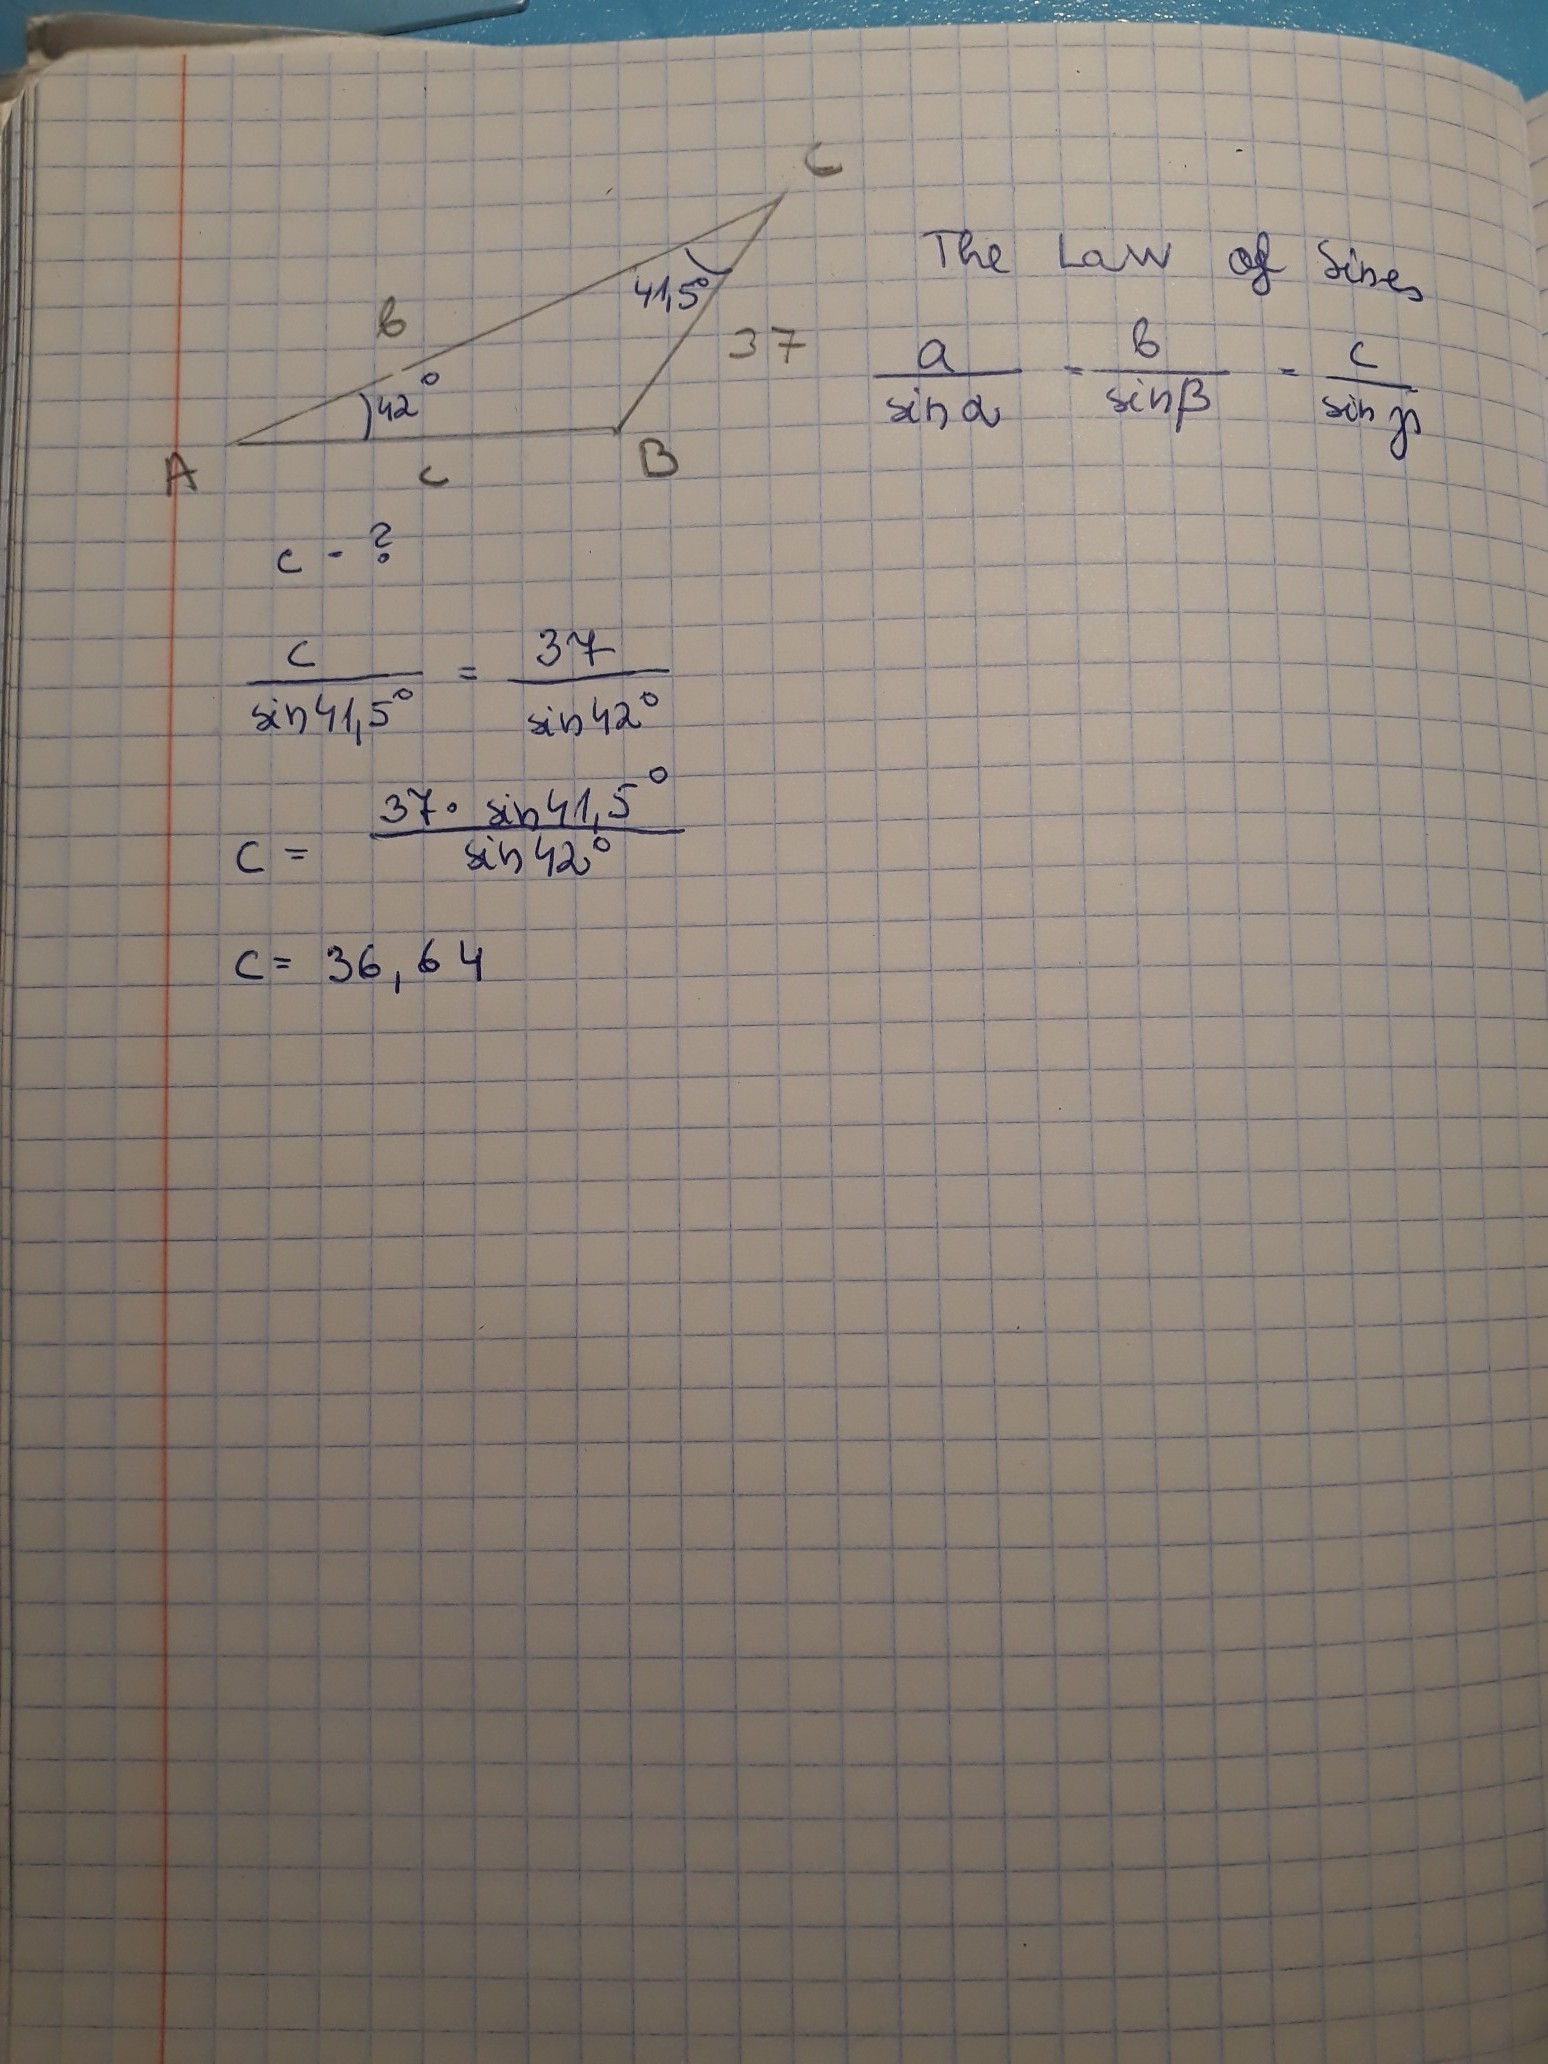 C
41,5°
b
37
42°
A
c
B
The Law of Sines
a/sinα = b/sinβ = c/sinγ
c - ?
c/sin41,5° = 37/sin42°
c = 37· sin41,5°/sin42°
c = 36,64